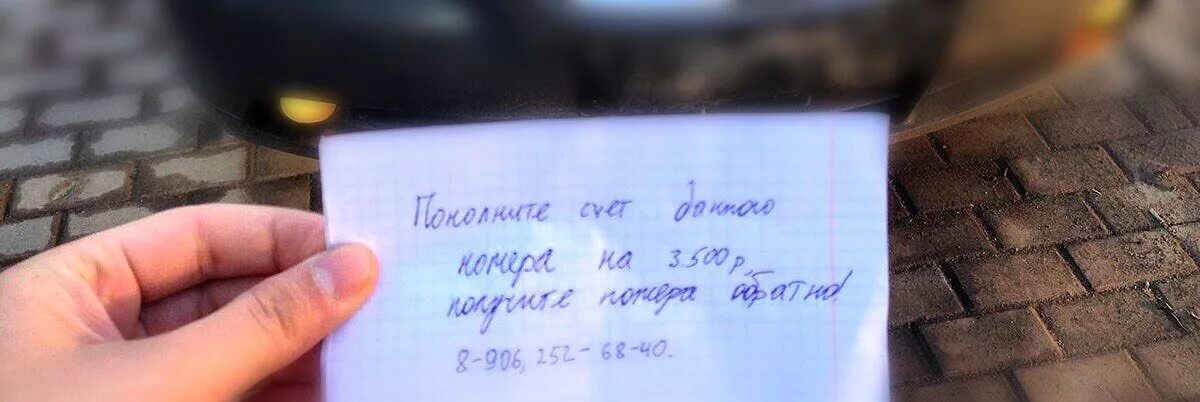 Пополните счет данного
номера на 3.500р,
получите номера обратно!
8-906, 252-68-40.